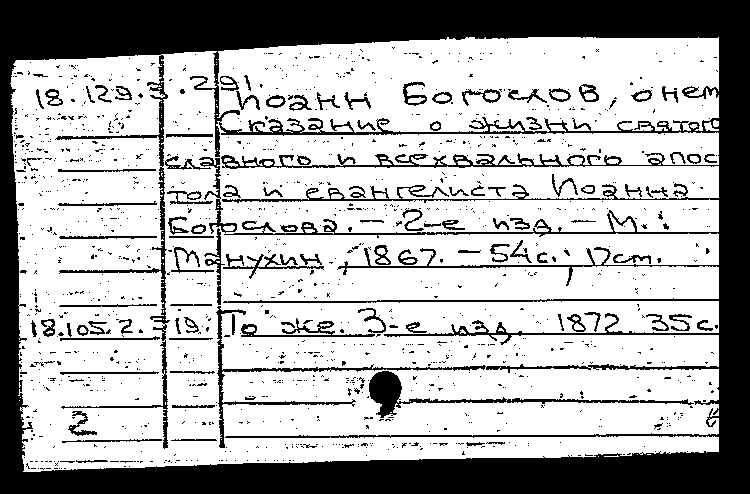 18.129.3.291. Иоанн Богослов, о нем
Сказание о жизни святого
славного и всехвального апос
тола и евангелиста Иоанна
Богослова. – 2-е изд. – М.:
Манухин, 1867. – 54 с.; 17 см.
18.105.2.519. То же. 3-е изд. 1872. 35 с.
2